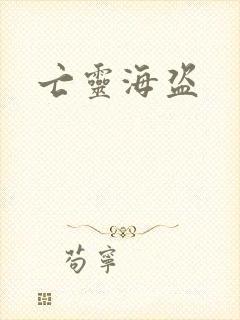 亡靈海盜
苟寧